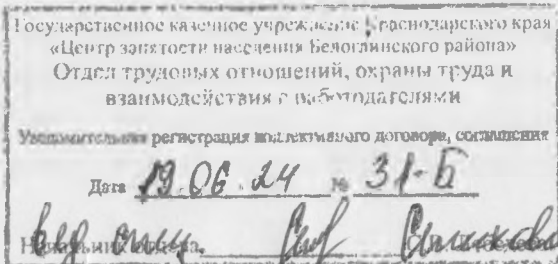 Государственное казенное учреждение Краснодарского края
«Центр занятости населения Белоглинского района»
Отдел трудовых отношений, охраны труда и
взаимодействия с работодателями
Уведомительная регистрация коллективного договора, соглашения
Дата 19.06.24 № 31-Б
Начальник отдела